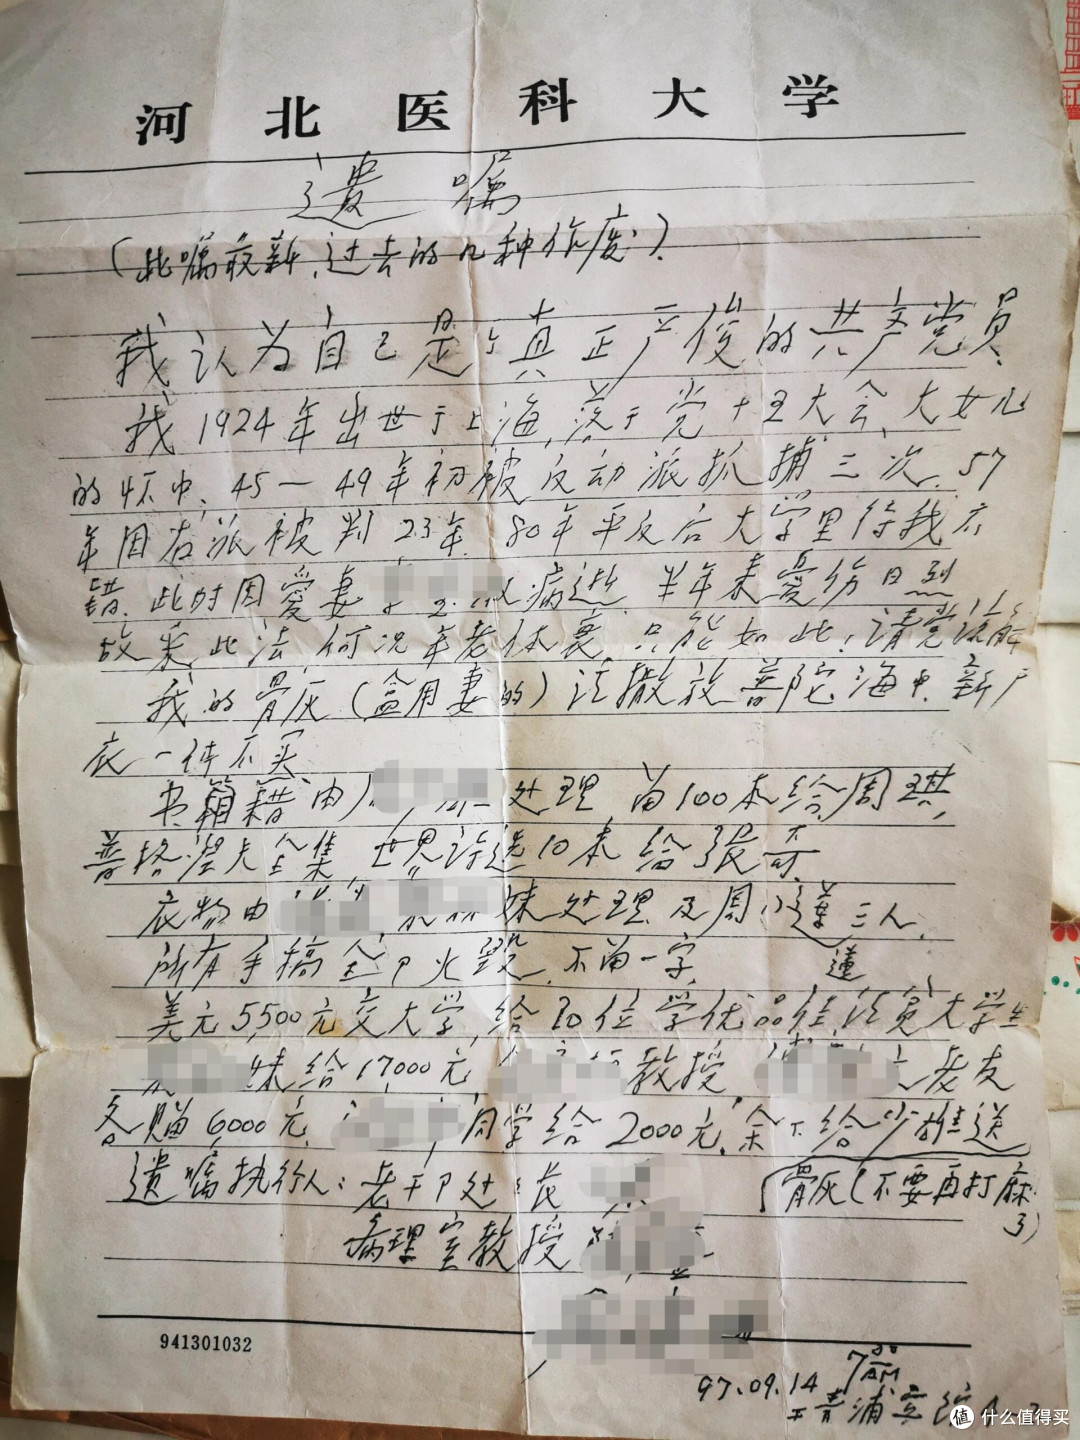 河北医科大学
遗嘱
(此嘱最新,过去的几种作废!)
我认为自己是个真正严俊的共产党员.
我1924年出世于上海,落于党十五大会、大女儿
的怀中、45—49年初被反动派抓捕三次.57
年因右派被判23年.80年平反后大学里待我不
错.此时因爱妻 病逝.半年来忧伤日烈
故采此法,何况年老体衰,只能如此,请党谅解
我的骨灰(盒用妻的)请撒放普陀海中.新
衣一件不买
书籍由 处理 留100本给周琪,
普格涅夫全集,世界诗选10本给张奇
衣物由 妹处理及周 莲三人.
所有手稿全部火毁,不留一字
莲
美元5,500元交大学,给10位学优品佳,清贫大学生
妹给17000元, 教授, 老友
各赠6000元, 同学给2000元,余下给 送
遗嘱执行人:老干部处长
骨灰(不要再打麻
了)
病理室教授
941301032
97.09.14 7 30 AM
于青浦宾馆
值 什么值得买